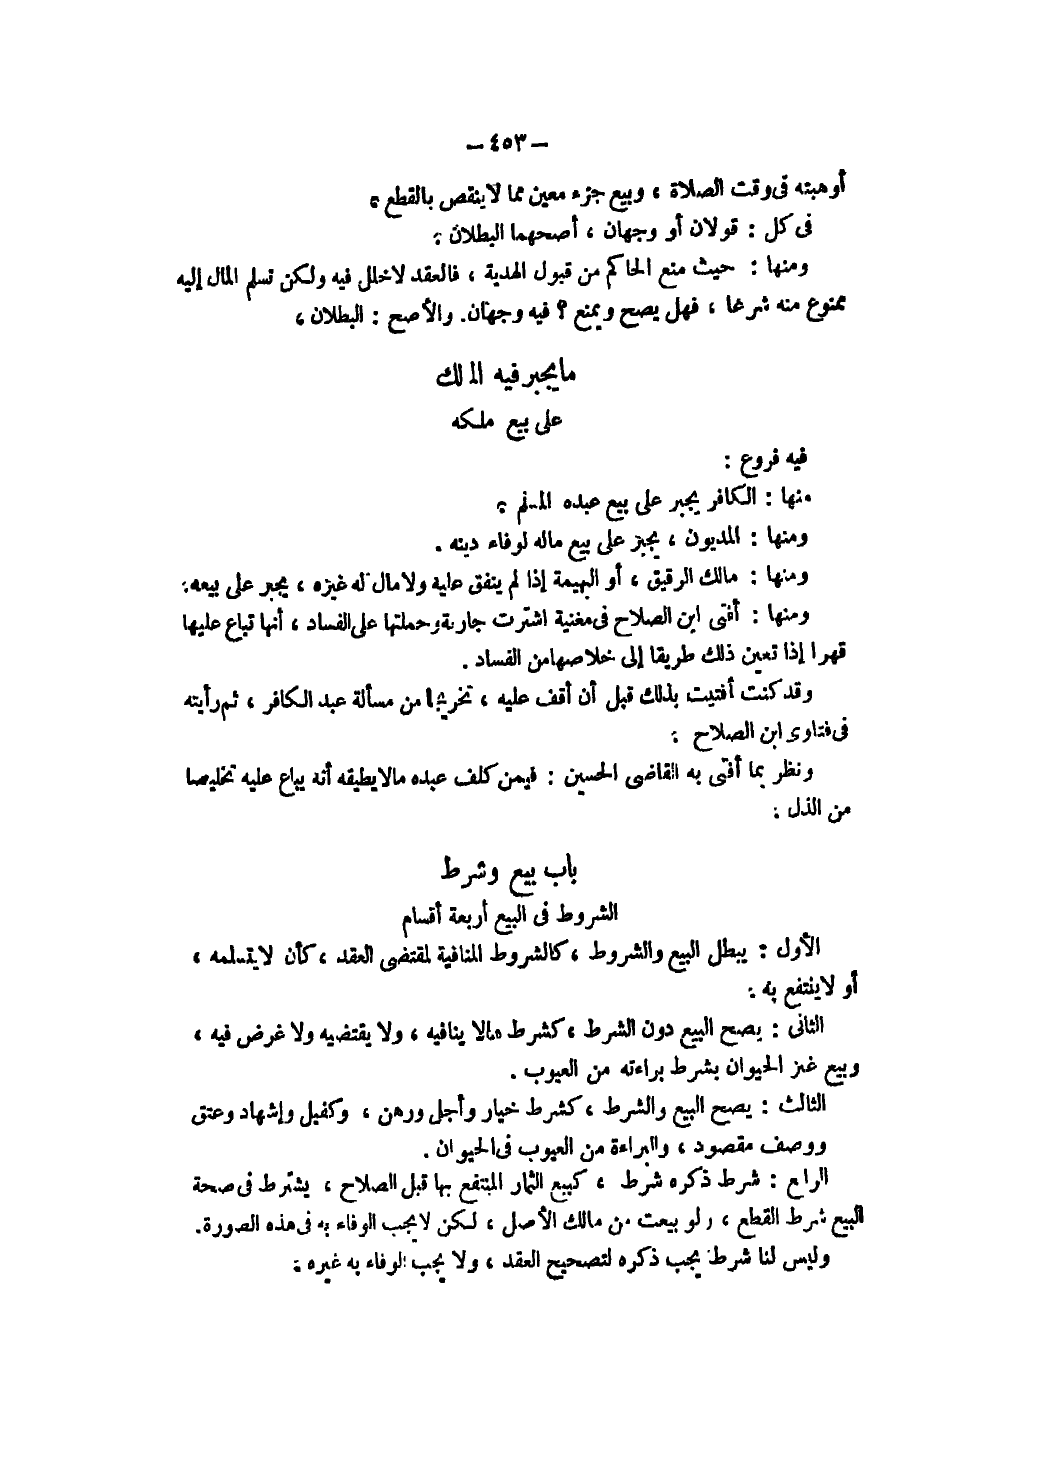 — ٤٥٣ —
أو هبته فى وقت الصلاة ، وبيع جزء معين مما لا ينقص بالقطع ؟
فى كل : قولان أو وجهان ، أصحهما البطلان :
ومنها : حيث منع الحاكم من قبول الهدية ، فالعقد لا خلل فيه ولكن تسلم المال إليه
ممنوع منه شرعا ، فهل يصح ويمنع ؟ فيه وجهان. والأصح : البطلان ،
ما يجبر فيه المالك
على بيع ملكه
فيه فروع :
منها : الكافر يجبر على بيع عبده المسلم :
ومنها : المديون ، يجبر على بيع ماله لوفاء دينه .
ومنها : مالك الرقيق ، أو البهيمة إذا لم ينفق علية ولا مال له غيره ، يجبر على بيعه:
ومنها : أفتى ابن الصلاح فى مغنية اشترت جارية وحملتها على الفساد ، أنها تباع عليها
قهرا إذا تعين ذلك طريقا إلى خلاصها من الفساد .
وقد كنت أفتيت بذلك قبل أن أقف عليه ، تخريجا من مسألة عبد الكافر ، ثم رأيته
فى فتاوى ابن الصلاح :
ونظر بما أفتى به القاضى الحسين : فيمن كلف عبده مالا يطيقه أنه يباع عليه تخليصا
من الذل :
باب بيع وشرط
الشروط فى البيع أربعة أقسام
الأول : يبطل البيع والشروط ، كالشروط المنافية لمقتضى العقد ، كأن لا يتسلمه ،
أو لا ينتفع به :
الثانى : يصح البيع دون الشرط ، كشرط مالا ينافيه ، ولا يقتضيه ولا غرض فيه ،
وبيع غير الحيوان بشرط براءته من العيوب .
الثالث : يصح البيع والشرط ، كشرط خيار وأجل ورهن ، وكفيل وإشهاد وعتق
ووصف مقصود ، والبراءة من العيوب فى الحيوان .
الرابع : شرط ذكره شرط ، كبيع الثمار المنتفع بها قبل الصلاح ، يشترط فى صحة
البيع شرط القطع ، ولو بيعت من مالك الأصل ، لكن لا يجب الوفاء به فى هذه الصورة.
وليس لنا شرط يجب ذكره لتصحيح العقد ، ولا يجب الوفاء به غيره :